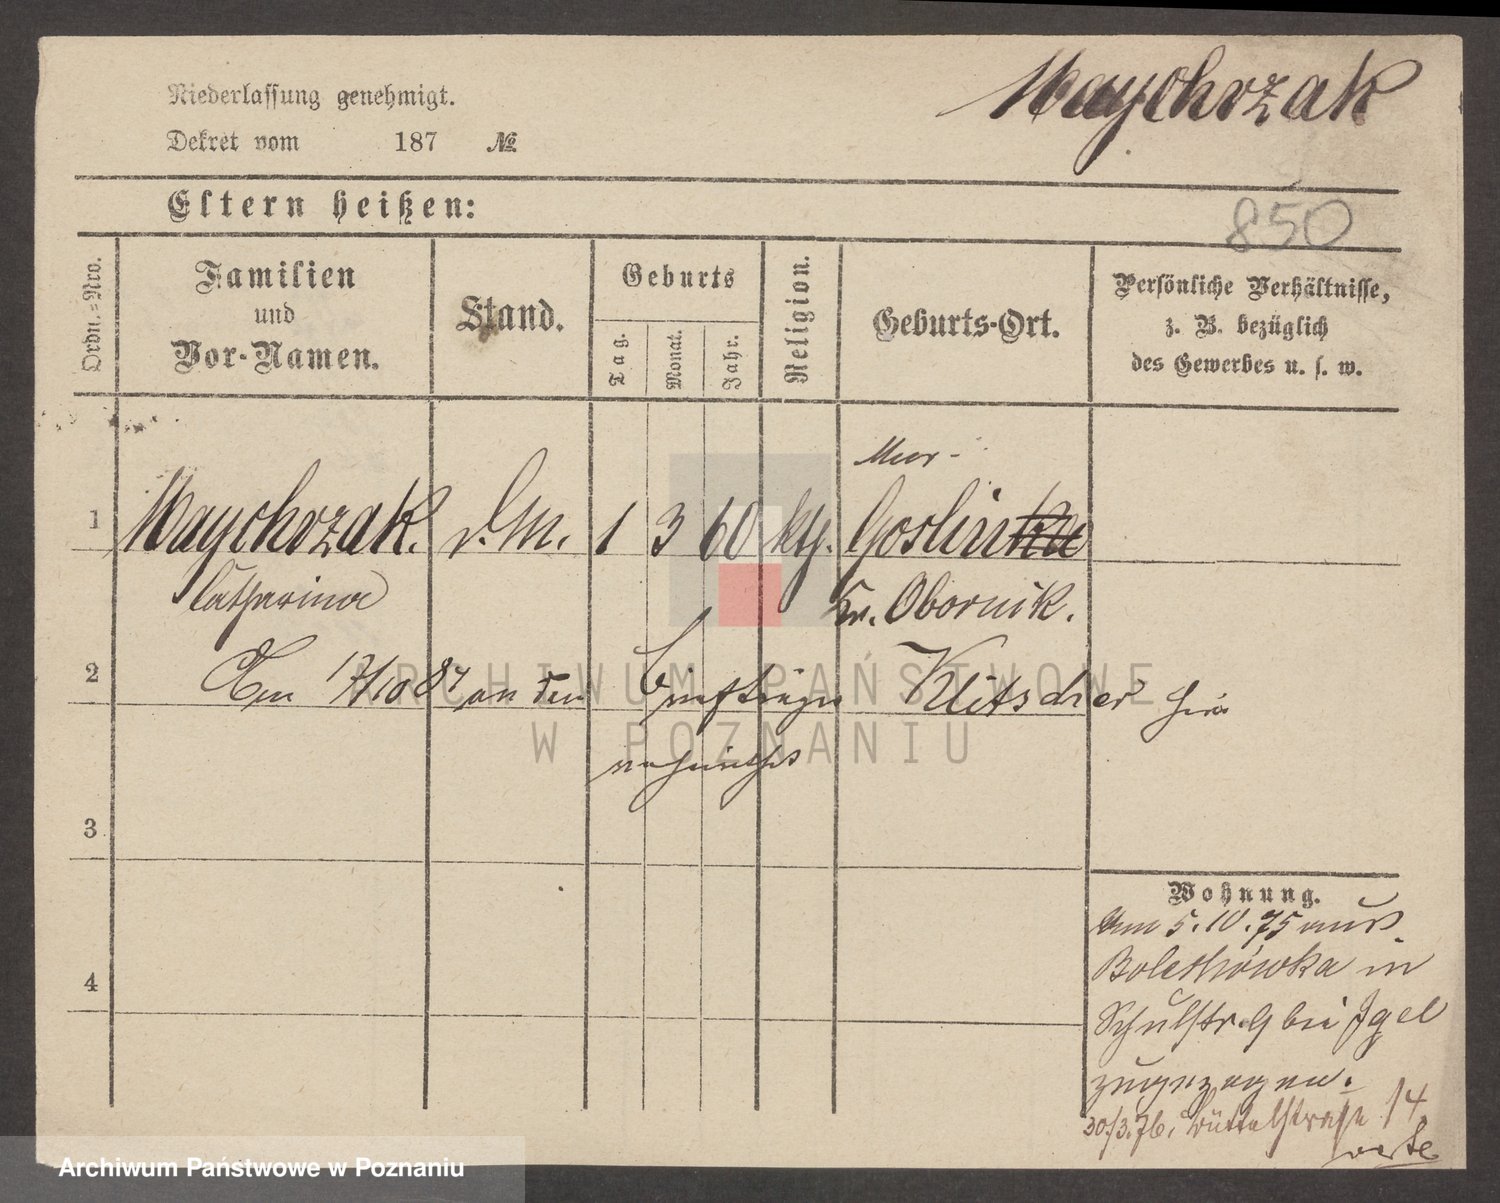 Maychrzak
Niederlassung genehmigt.
Dekret vom 187 №
Eltern heißen:
850
Ordn.=Nro.
Familien
und
Vor-Namen.
Stand.
Geburts
Tag.
Monat.
Jahr.
Religion.
Geburts-Ort.
Persönliche Verhältnisse,
z. B. bezüglich
des Gewerbes u. s. w.
Mur-
1 Maychrzak. d.M. 1 3 60 kth. Goslin
Catharina Kr. Obornik.
2 Am 17/10 87 an den Klitscher hier
3
4
Wohnung.
Am 5.10.75 aus
in
Schulstr. 9 bei Igel
zugezogen.
30./3.76. Büttelstraße 14
ARCHIWUM PAŃSTWOWE
W POZNANIU
Archiwum Państwowe w Poznaniu